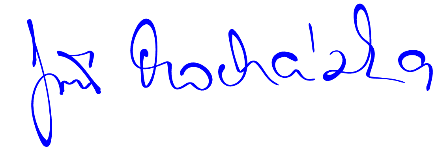 Jiří Procházka